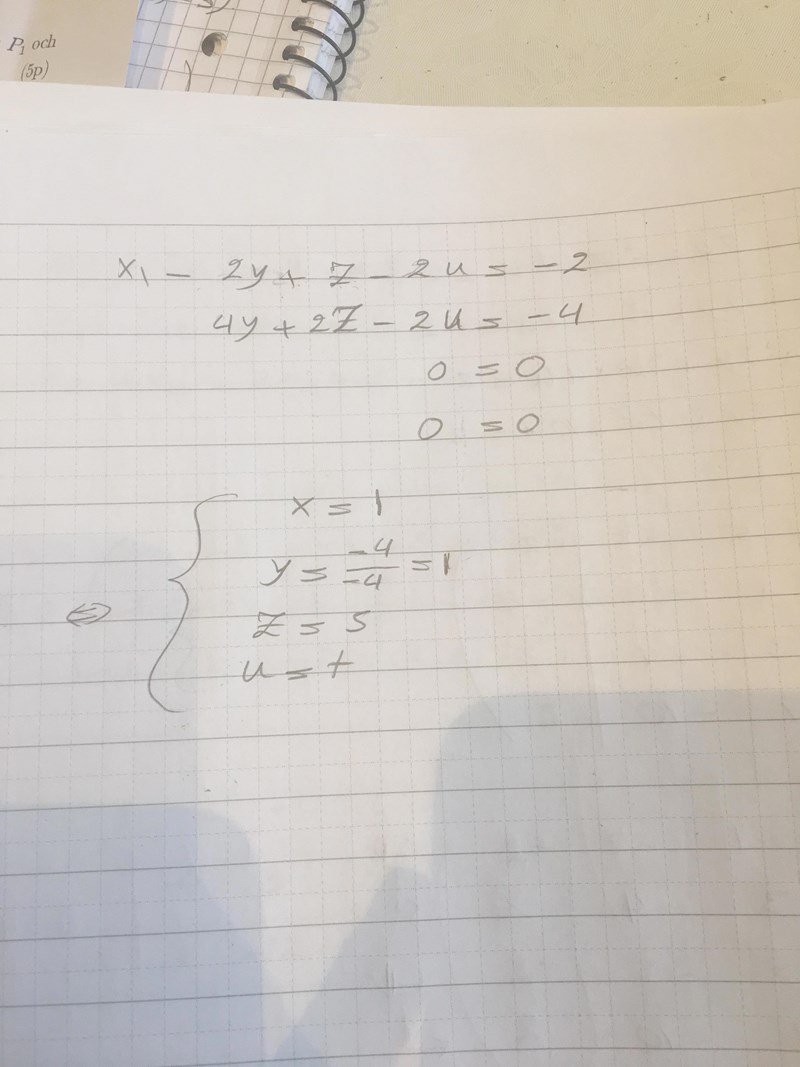 P₁ och
(5p)
x₁ - 2y + z - 2u = -2
4y + 2z - 2u = -4
0 = 0
0 = 0
⇔ { x = 1
y = -4/-4 = 1
z = s
u = t